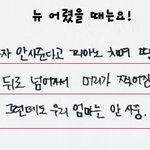 뉴 어렸을 때는요!
자 안사준다고 피아노 치며
뒤로 넘어져서 머리가 찢어진
그런데도 우리 엄마는 안 사줌.